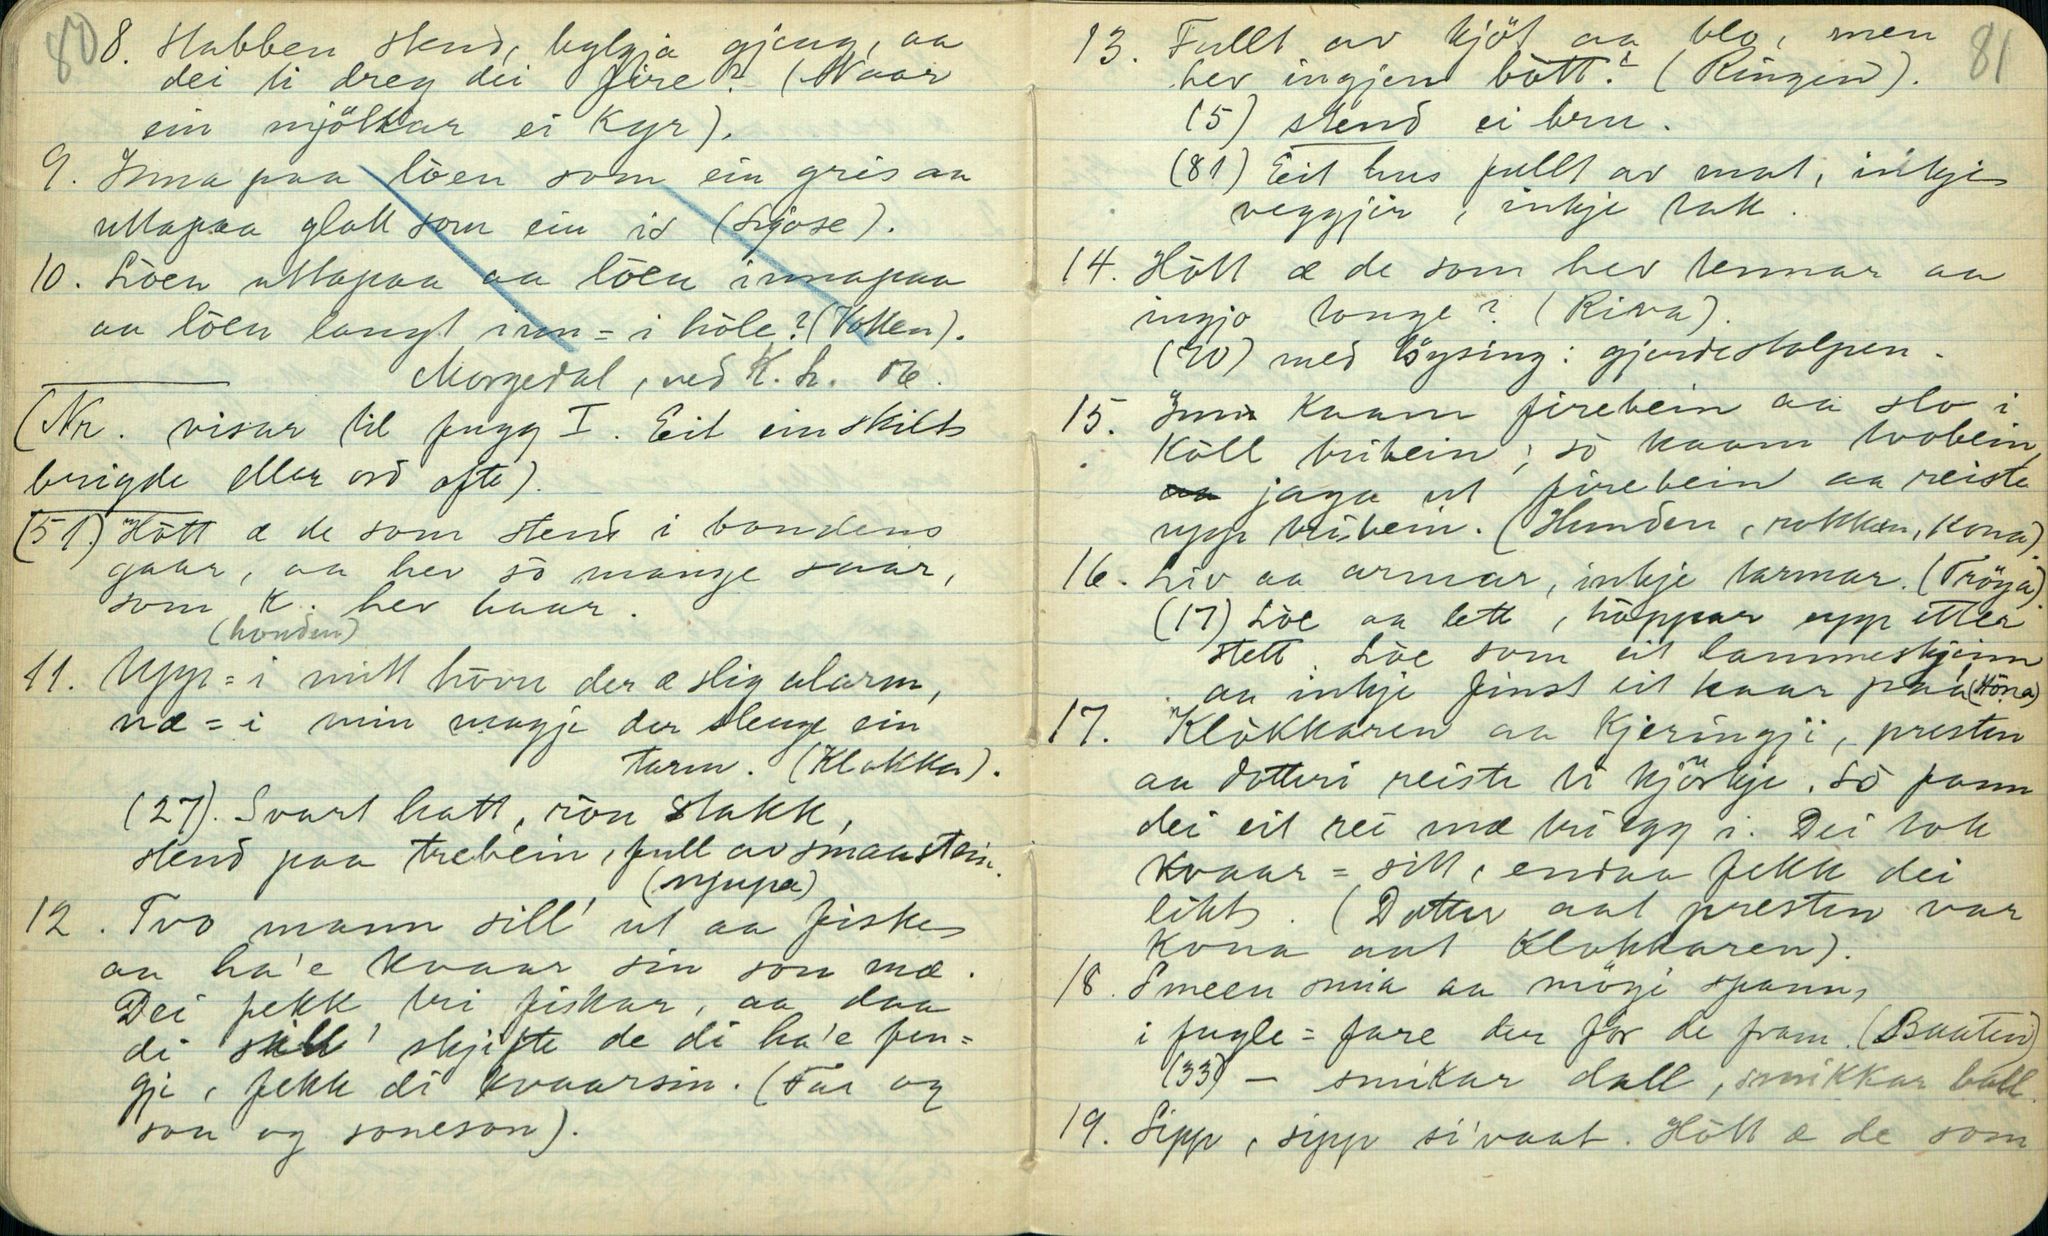 80
8. Stabben stend, bylgja gjeng, aa
dei ti dreg dei fire? (Naar
ein mjölkar ei Kyr).
9. Inna paa lòen som ein gris aa
uttapaa glatt som ein is (Ljose).
10. Lòen uttapaa aa lòen innapaa
aa lòen langt inn = i hòle? (Votten).
Morgedal, ved K. L. 06.
(Nr. visar til fugg I. Eit einskilt
brigde eller ord ofte).
(51.) Hòtt æ de som stend i bondens
gaar, aa hev sò mange saar,
som K. hev haar.
(honden)
11. Upp = i mitt hòvu der æ slig alarm,
næ = i min magje der slenge ein
tarm. (Klokka).
(27). Svart hatt, ròu stakk,
stend paa trebein, full av smaastein.
(njupa)
12. Tvo mann sill' ut aa fiske
aa ha'e kvaar sin son mæ.
Dei fekk tri fiskar, aa daa
di sill' skjifte de di ha'e fen=
gje, fekk di kvaarsin. (Far og
son og soneson).
81
13. Fullt av kjöt aa blo, men
hev ingjen bòtt? (Ringen).
(5) stend ei bru.
(81) Eit hus fullt av mat, inkje
veggjir, inkje tak.
14. Hòtt æ de som hev tennar aa
ingjo tonge? (Riva).
(70) med lòysing: gjerdestolpen.
15. Inn kaam firebein aa slo i
Kòll tribein; sò kaam tvobein,
jaga ut firebein aa reiste
upp tribein. (Hunden, rokken, Kona).
16. Liv aa armar, inkje tarmar. (Tröya).
(17) Lòe aa lett, hòppar upp etter
stett. Lòe som eit lammeskjinn
aa inkje finst eit haar paa (Höna)
17. Klòkkaren aa Kjeringji, presten
aa dotteri reiste ti kjörkje. Sò fann
dei eit rei mæ tri egg i. Dei tok
kvaar = sitt, endaa fekk dei
likt. (Dotter aat presten var
Kona aat Klokkaren).
18. Smeen smia aa möyi spann,
i fugle = fare der fór de fram. (Baaten)
(33) — smikar dall, smikkar ball.
19. Sipp, sipp si'vaat. Hòtt æ de som